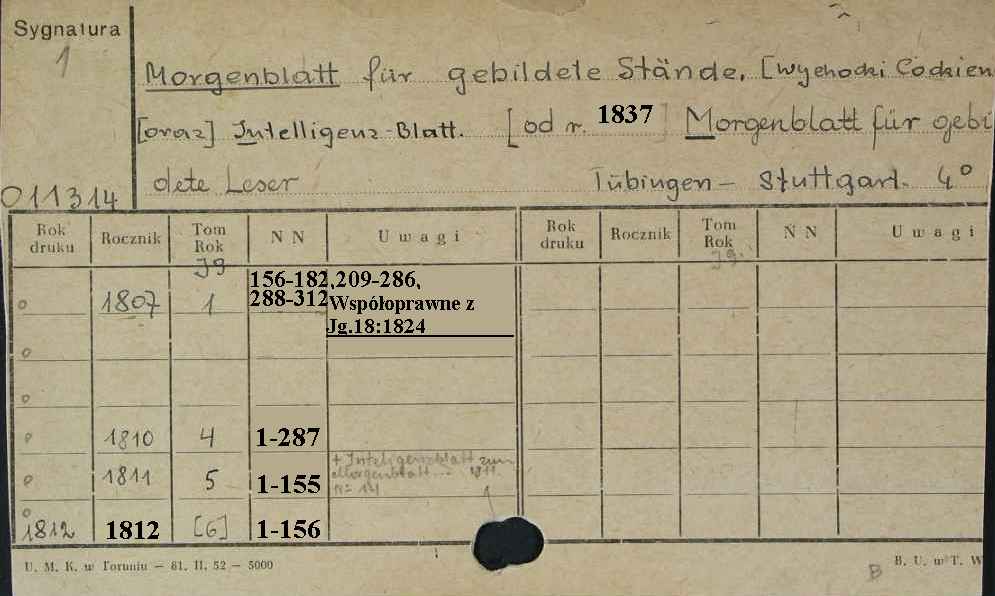 Sygnatura
1
Morgenblatt für gebildete Stände. [Wychodzi Codzien
[oraz] Intelligenz-Blatt. [od r. 1837] Morgenblatt für gebi
dete Leser Tübingen - Stuttgart. 4°
011314
Rok druku Rocznik Tom Rok N N Uwagi Rok druku Rocznik Tom Rok N N Uwagi
Jg Jg.
1807 1 156-182,209-286,
288-312 Współoprawne z
Jg.18:1824
1810 4 1-287
1811 5 1-155 + Inteligenzblatt zum
Morgenblatt 1811
N= 14
1812 1812 [6] 1-156
U. M. K. w Toruniu — 81. II. 52 — 5000
B B. U. w T. W